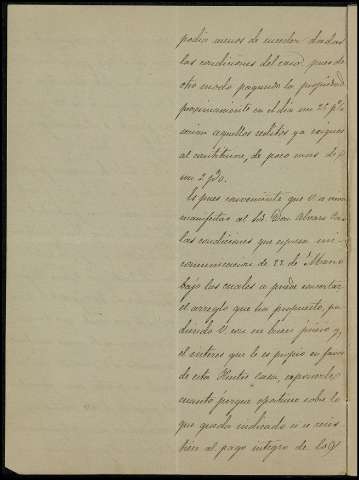 podía menos de suceder dadas
las condiciones del caso: pues de
otro modo pagando la propiedad
proximamente en el dia un 25 p%
serian aquellos reditos ya exiguos
al contribuir, de poco mas de
un 2 p%.
Es pues conveniente que V. a
manifestar al Sr. Don Alvaro
las condiciones que expresa mi
comunicacion de 22 de Marzo
bajo las cuales se puede concertar
el arreglo que ha propuesto, pu
diendo V. con su buen juicio y
el interes que le es propio en favor
de esta Casa, exponerle
cuanto juzgue oportuno sobre lo
que queda indicado
tien al pago integro de los